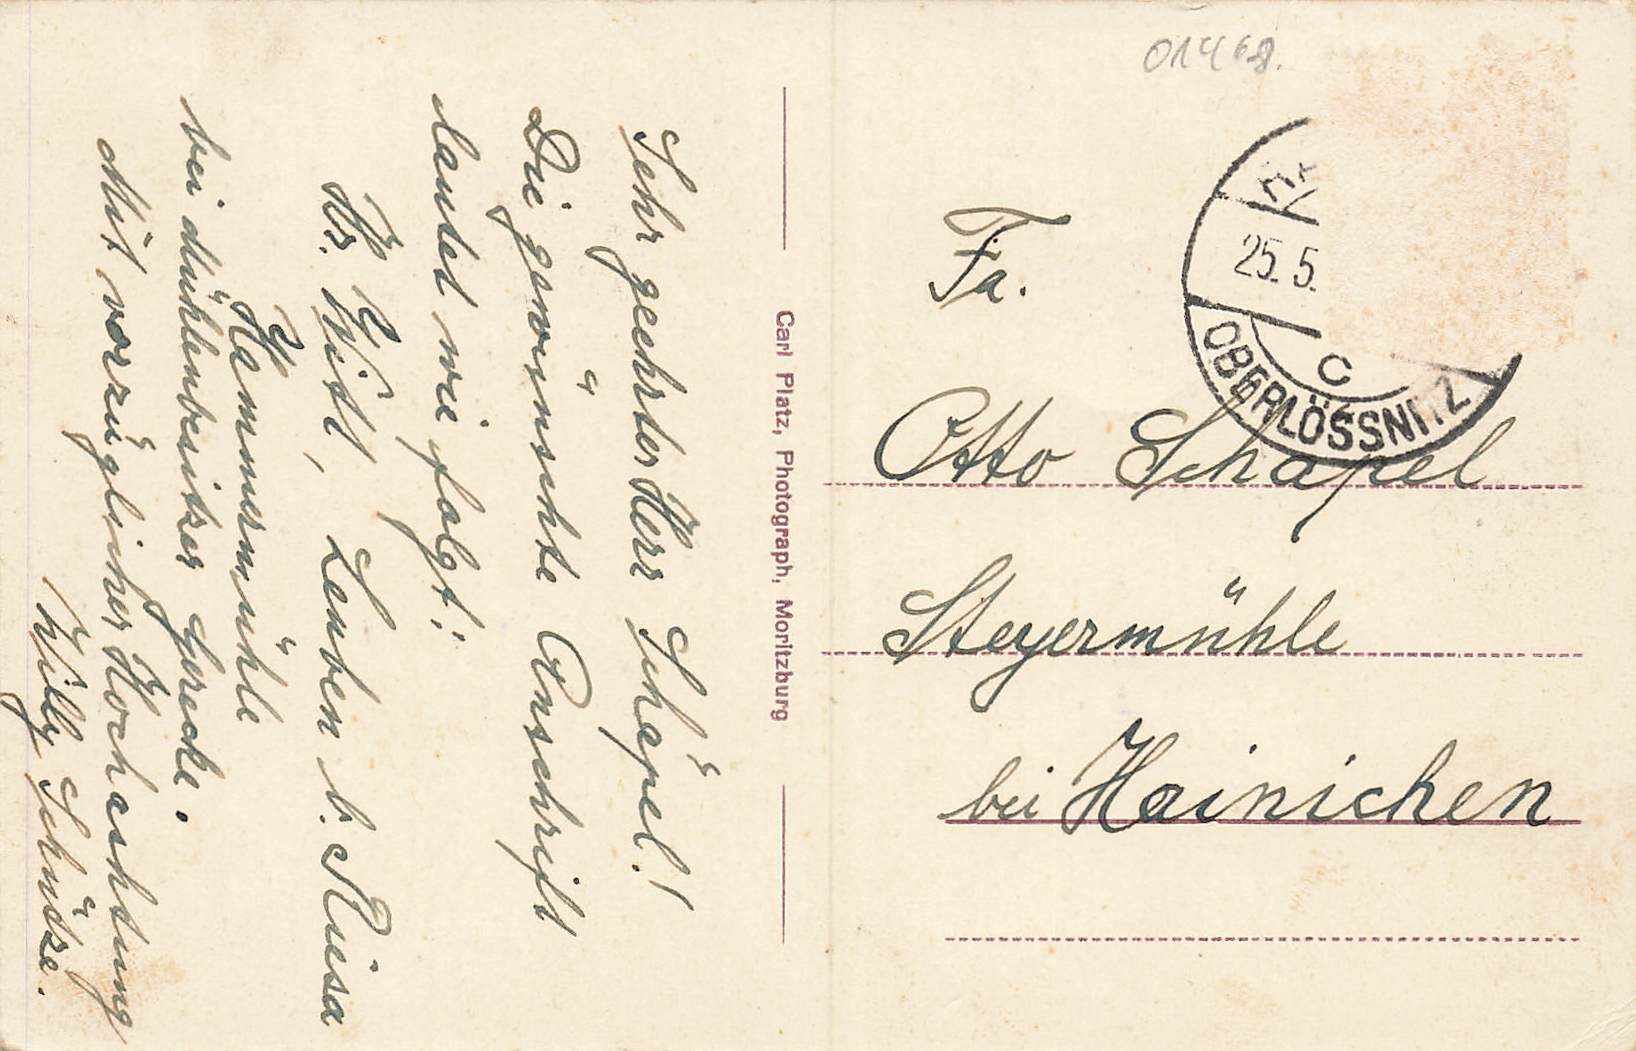 Sehr geehrter Herr Schäpel!
Die gewünschte Anschrift
lautet wie folgt:
Hr. Witt, Leuben b. Riesa
Hammermühle
bei Mühlenbesitzer Gericke.
Mit vorzüglicher Hochachtung
Willy Schütze.
Carl Platz, Photograph, Moritzburg
01468.
25.5.
c
OBERLÖSSNITZ
Fa.
Otto Schäpel
Steyermühle
bei Hainichen